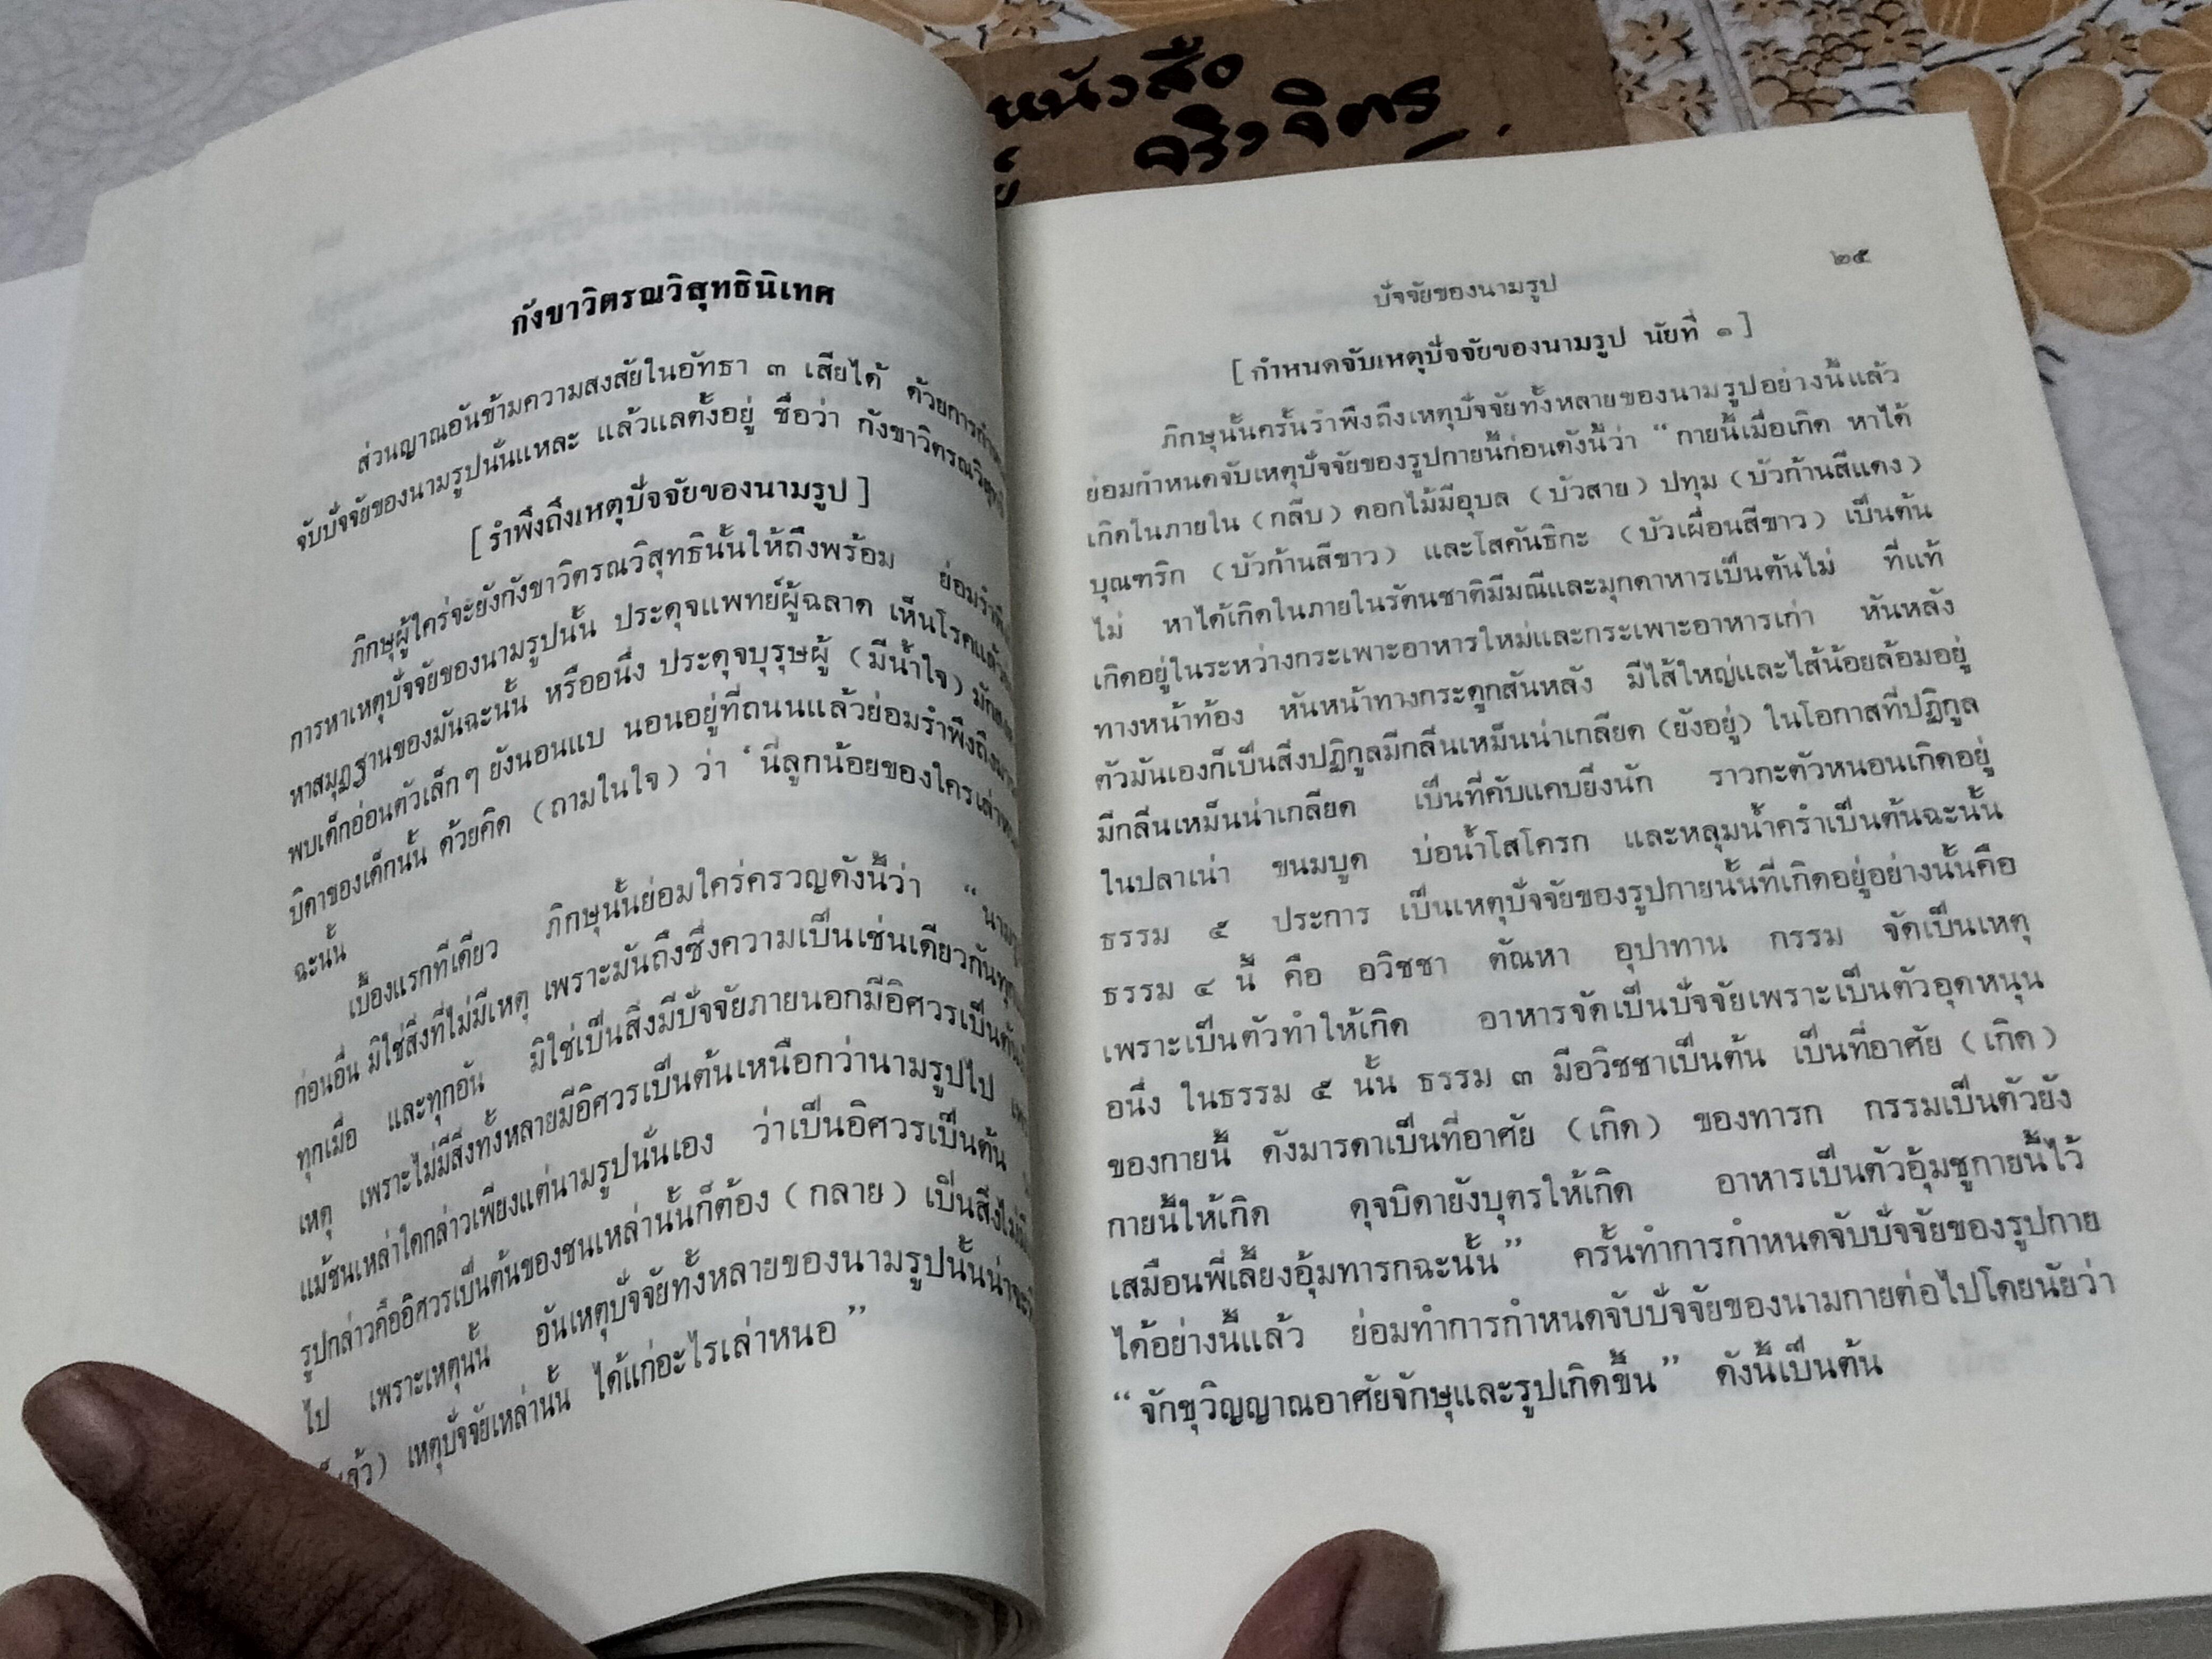 หนังสือ
จริงจิตร
กังขาวิตรณวิสุทธินิเทศ
ส่วนญาณอันข้ามความสงสัยในอัทธา ๓ เสียได้ ด้วยการกำหนด
จับปัจจัยของนามรูปนั่นแหละ แล้วแลตั้งอยู่ ชื่อว่า กังขาวิตรณวิสุทธิ
[ รำพึงถึงเหตุปัจจัยของนามรูป ]
ภิกษุผู้ใคร่จะยังกังขาวิตรณวิสุทธินั้นให้ถึงพร้อม ย่อมรำพึง
การหาเหตุปัจจัยของนามรูปนั้น ประดุจแพทย์ผู้ฉลาด เห็นโรคแล้ว
หาสมุฏฐานของมันฉะนั้น หรืออนึ่ง ประดุจบุรุษผู้ (มีน้ำใจ)
พบเด็กอ่อนตัวเล็กๆ ยังนอนแบ นอนอยู่ที่ถนนแล้วย่อมรำพึงถึง
บิดาของเด็กนั้น ด้วยคิด (ถามในใจ) ว่า ‘นี่ลูกน้อยของใครเล่าหนอ
ฉะนั้น
เบื้องแรกทีเดียว ภิกษุนั้นย่อมใคร่ครวญดังนี้ว่า “นามรูป
ก่อนอื่น มิใช่สิ่งที่ไม่มีเหตุ เพราะมันถึงซึ่งความเป็นเช่นเดียวกัน
ทุกเมื่อ และทุกอัน มิใช่เป็นสิ่งมีปัจจัยภายนอกมีอิศวรเป็นต้น
เหตุ เพราะไม่มีสิ่งทั้งหลายมีอิศวรเป็นต้นเหนือกว่านามรูปไป
แม้ชนเหล่าใดกล่าวเพียงแต่นามรูปนั่นเอง ว่าเป็นอิศวรเป็นต้น
รูปกล่าวคืออิศวรเป็นต้นของชนเหล่านั้นก็ต้อง (กลาย) เป็นสิ่งไม่มี
ไป เพราะเหตุนั้น อันเหตุปัจจัยทั้งหลายของนามรูปนั้นน่าจะ
แล้ว) เหตุปัจจัยเหล่านั้น ได้แก่อะไรเล่าหนอ”
ปัจจัยของนามรูป ๒๕
[ กำหนดจับเหตุปัจจัยของนามรูป นัยที่ ๑ ]
ภิกษุนั้นครั้นรำพึงถึงเหตุปัจจัยทั้งหลายของนามรูปอย่างนี้แล้ว
ย่อมกำหนดจับเหตุปัจจัยของรูปกายนี้ก่อนดังนี้ว่า “กายนี้เมื่อเกิด หาได้
เกิดในภายใน (กลีบ) ดอกไม้มีอุบล (บัวสาย) ปทุม (บัวก้านสีแดง)
บุณฑริก (บัวก้านสีขาว) และโสคันธิกะ (บัวเผื่อนสีขาว) เป็นต้น
ไม่ หาได้เกิดในภายในรัตนชาติมีมณีและมุกดาหารเป็นต้นไม่ ที่แท้
เกิดอยู่ในระหว่างกระเพาะอาหารใหม่และกระเพาะอาหารเก่า หันหลัง
ทางหน้าท้อง หันหน้าทางกระดูกสันหลัง มีไส้ใหญ่และไส้น้อยล้อมอยู่
ตัวมันเองก็เป็นสิ่งปฏิกูลมีกลิ่นเหม็นน่าเกลียด (ยังอยู่) ในโอกาสที่ปฏิกูล
มีกลิ่นเหม็นน่าเกลียด เป็นที่คับแคบยิ่งนัก ราวกะตัวหนอนเกิดอยู่
ในปลาเน่า ขนมบูด บ่อน้ำโสโครก และหลุมน้ำครำเป็นต้นฉะนั้น
ธรรม ๕ ประการ เป็นเหตุปัจจัยของรูปกายนั้นที่เกิดอยู่อย่างนั้นคือ
ธรรม ๔ นี้ คือ อวิชชา ตัณหา อุปาทาน กรรม จัดเป็นเหตุ
เพราะเป็นตัวทำให้เกิด อาหารจัดเป็นปัจจัยเพราะเป็นตัวอุดหนุน
อนึ่ง ในธรรม ๕ นั้น ธรรม ๓ มีอวิชชาเป็นต้น เป็นที่อาศัย (เกิด)
ของกายนี้ ดังมารดาเป็นที่อาศัย (เกิด) ของทารก กรรมเป็นตัวยัง
กายนี้ให้เกิด ดุจบิดายังบุตรให้เกิด อาหารเป็นตัวอุ้มชูกายนี้ไว้
เสมือนพี่เลี้ยงอุ้มทารกฉะนั้น” ครั้นทำการกำหนดจับปัจจัยของรูปกาย
ได้อย่างนี้แล้ว ย่อมทำการกำหนดจับปัจจัยของนามกายต่อไปโดยนัยว่า
“จักขุวิญญาณอาศัยจักษุและรูปเกิดขึ้น” ดังนี้เป็นต้น